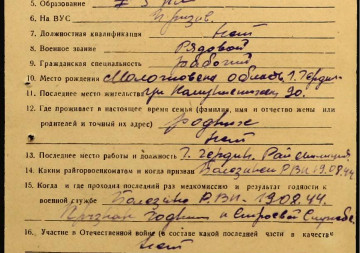 5. Образование
6. На ВУС призыв.
7. Должностная квалификация Нет
8. Военное звание Рядовой
9. Гражданская специальность Рабочий
10. Место рождения Молотовская область, г. Чердынь
11. Последнее место жительства
12. Где проживает в настоящее время семья (фамилия, имя и отчество жены или
родителей и точный их адрес) родных
нет
13. Последнее место работы и должность г. Чердынь, Рай
14. Каким райгорвоенкоматом и когда призван РВК 19.08.44
15. Когда и где проходил последний раз медкомиссию и результат годности к
военной службе РВК-19.08.44.
Признан Годным к строевой службе
16. Участие в Отечественной войне (в составе какой последней части в качеств
Нет